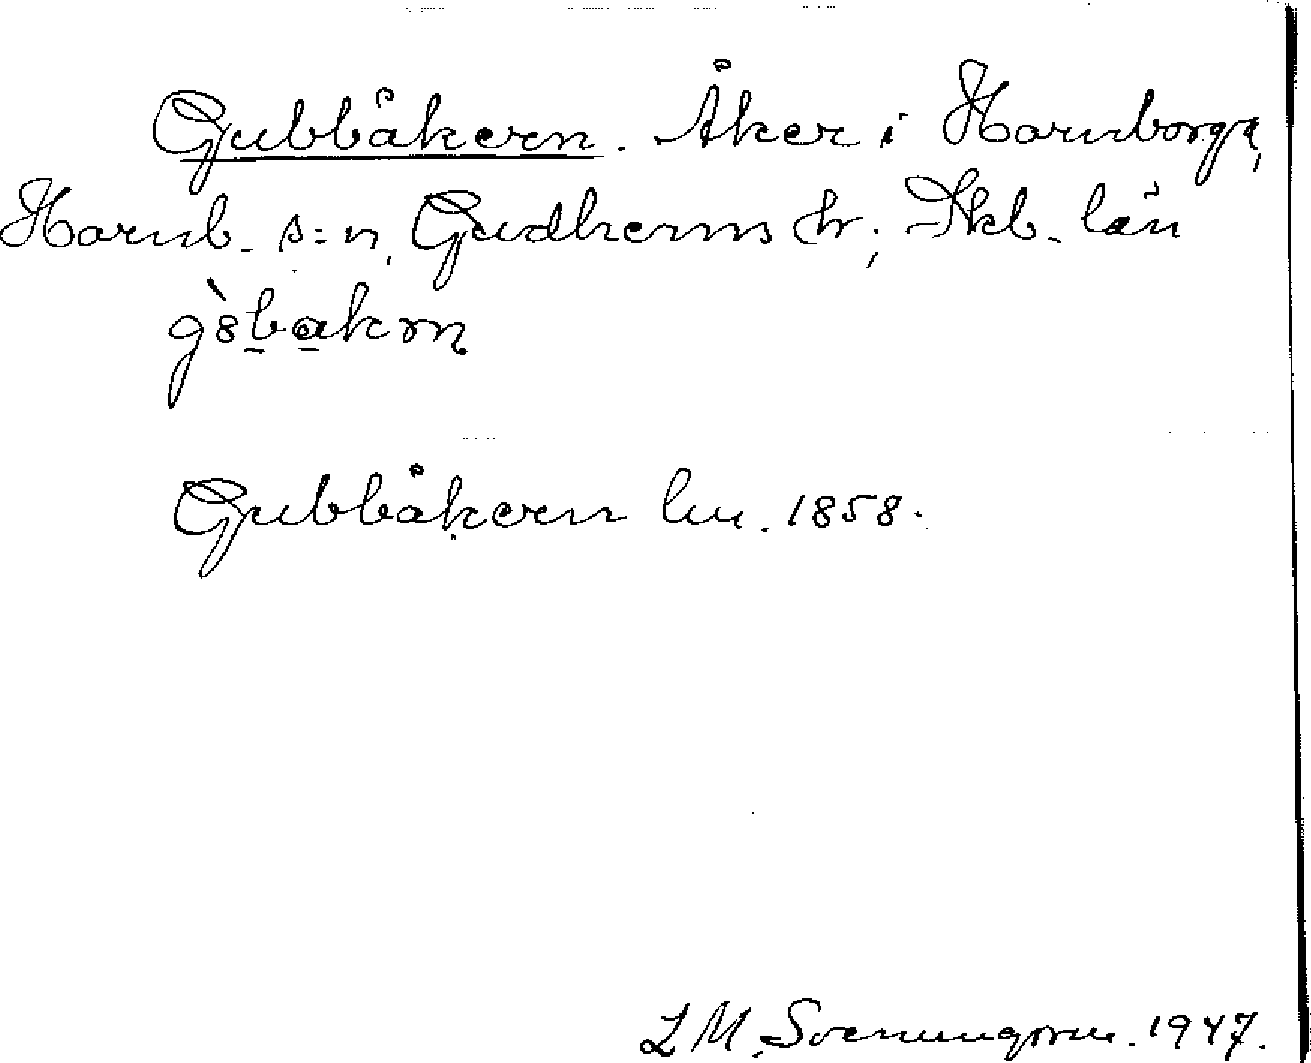 Gubbåkern. Åker i Hornborga,
Hornb. s:n, Gudhems hr, Skb. län
gàbakrn
Gubbåkern lm. 1858.
L M. Svenungsson. 1947.